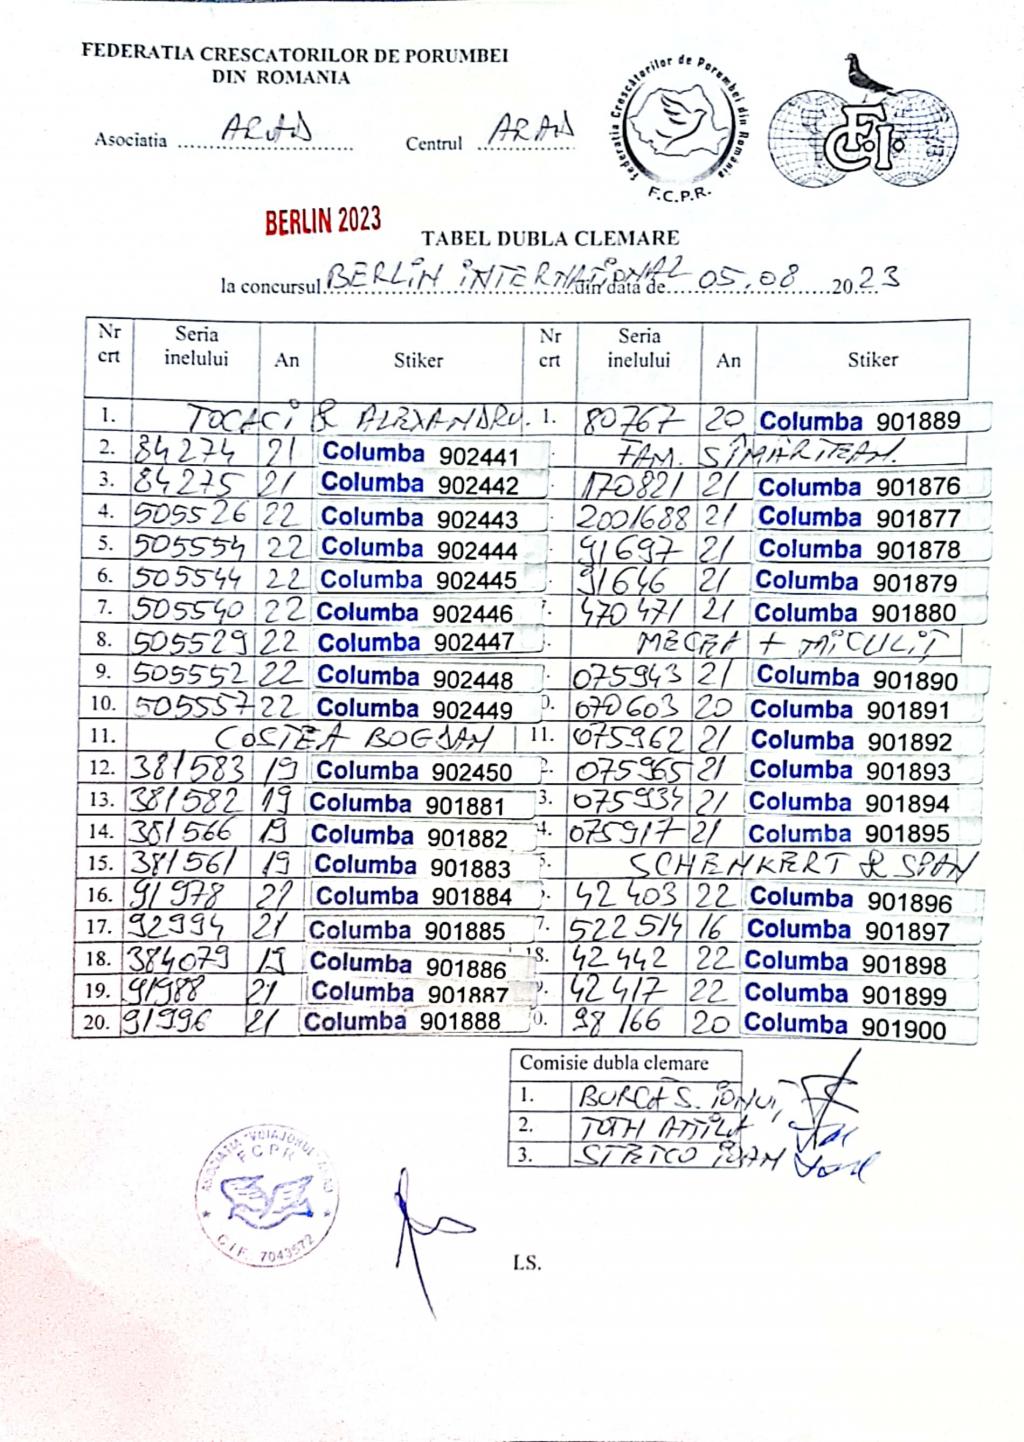 FEDERATIA CRESCATORILOR DE PORUMBEI
DIN ROMANIA
Asociatia ARAD Centrul ARAD
Federatia Crescătorilor de Porumbei din România
F.C.P.R.
F.C.I.
BERLIN 2023
TABEL DUBLA CLEMARE
la concursul BERLIN INTERNATIONAL din data de 05.08 2023
Nr crt Seria inelului An Stiker Nr crt Seria inelului An Stiker
1. TOCACI & ALEXANDRU 1. 80767 20 Columba 901889
2. 84274 21 Columba 902441 FAM. SÎMĂRTEAN
3. 84275 21 Columba 902442 170821 21 Columba 901876
4. 505526 22 Columba 902443 2001688 21 Columba 901877
5. 505554 22 Columba 902444 91697 21 Columba 901878
6. 505544 22 Columba 902445 91646 21 Columba 901879
7. 505540 22 Columba 902446 7. 470471 21 Columba 901880
8. 505529 22 Columba 902447 MECEA + MICULIȚ
9. 505552 22 Columba 902448 075943 21 Columba 901890
10. 505557 22 Columba 902449 0. 070603 20 Columba 901891
11. COSTEA BOGDAN 11. 075962 21 Columba 901892
12. 381583 19 Columba 902450 2. 075965 21 Columba 901893
13. 381582 19 Columba 901881 3. 075934 21 Columba 901894
14. 381566 19 Columba 901882 4. 075917 21 Columba 901895
15. 381561 19 Columba 901883 5. SCHENKERT & SPAN
16. 91978 21 Columba 901884 42403 22 Columba 901896
17. 92994 21 Columba 901885 7. 522514 16 Columba 901897
18. 384079 19 Columba 901886 18. 42442 22 Columba 901898
19. 91988 21 Columba 901887 9. 42417 22 Columba 901899
20. 91996 21 Columba 901888 0. 98166 20 Columba 901900
Comisie dubla clemare
1. BURCĂ S. IONUȚ
2. TOTH ATTILA
3. IOAN
ASOCIATIA "VOIAJORUL" ARAD
FCPR
C.I.F. 7043572
LS.